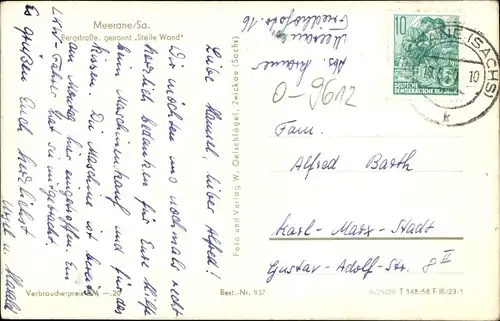 Meerane/Sa.
Bergstraße, genannt „Steile Wand"
Liebe Hannel, lieber Alfred!
Wir möchten uns nochmals recht
herzlich bedanken für Eure Hilfe
beim Maschinenkauf und für das
Kissen. Die Maschine ist bereits
am Montag hier eingetroffen. Ein
LKW-Fahrer hat sie mitgebracht.
Es grüßen Euch herzlichst
u.
Verbraucherpreis DM —.20
Best.-Nr. 937
Foto und Verlag W. Oelschlägel, Zwickau (Sachs)
Abs.
Meerane
Friedhofstr. 16
MEERANE (SACHS)
k
10
DEUTSCHE
DEMOKRATISCHE REPUBLIK
O-9612
Fam.
Alfred Barth
Karl-Marx-Stadt
Gustav-Adolf-Str. 8 II
T 148/58 F III/23/1